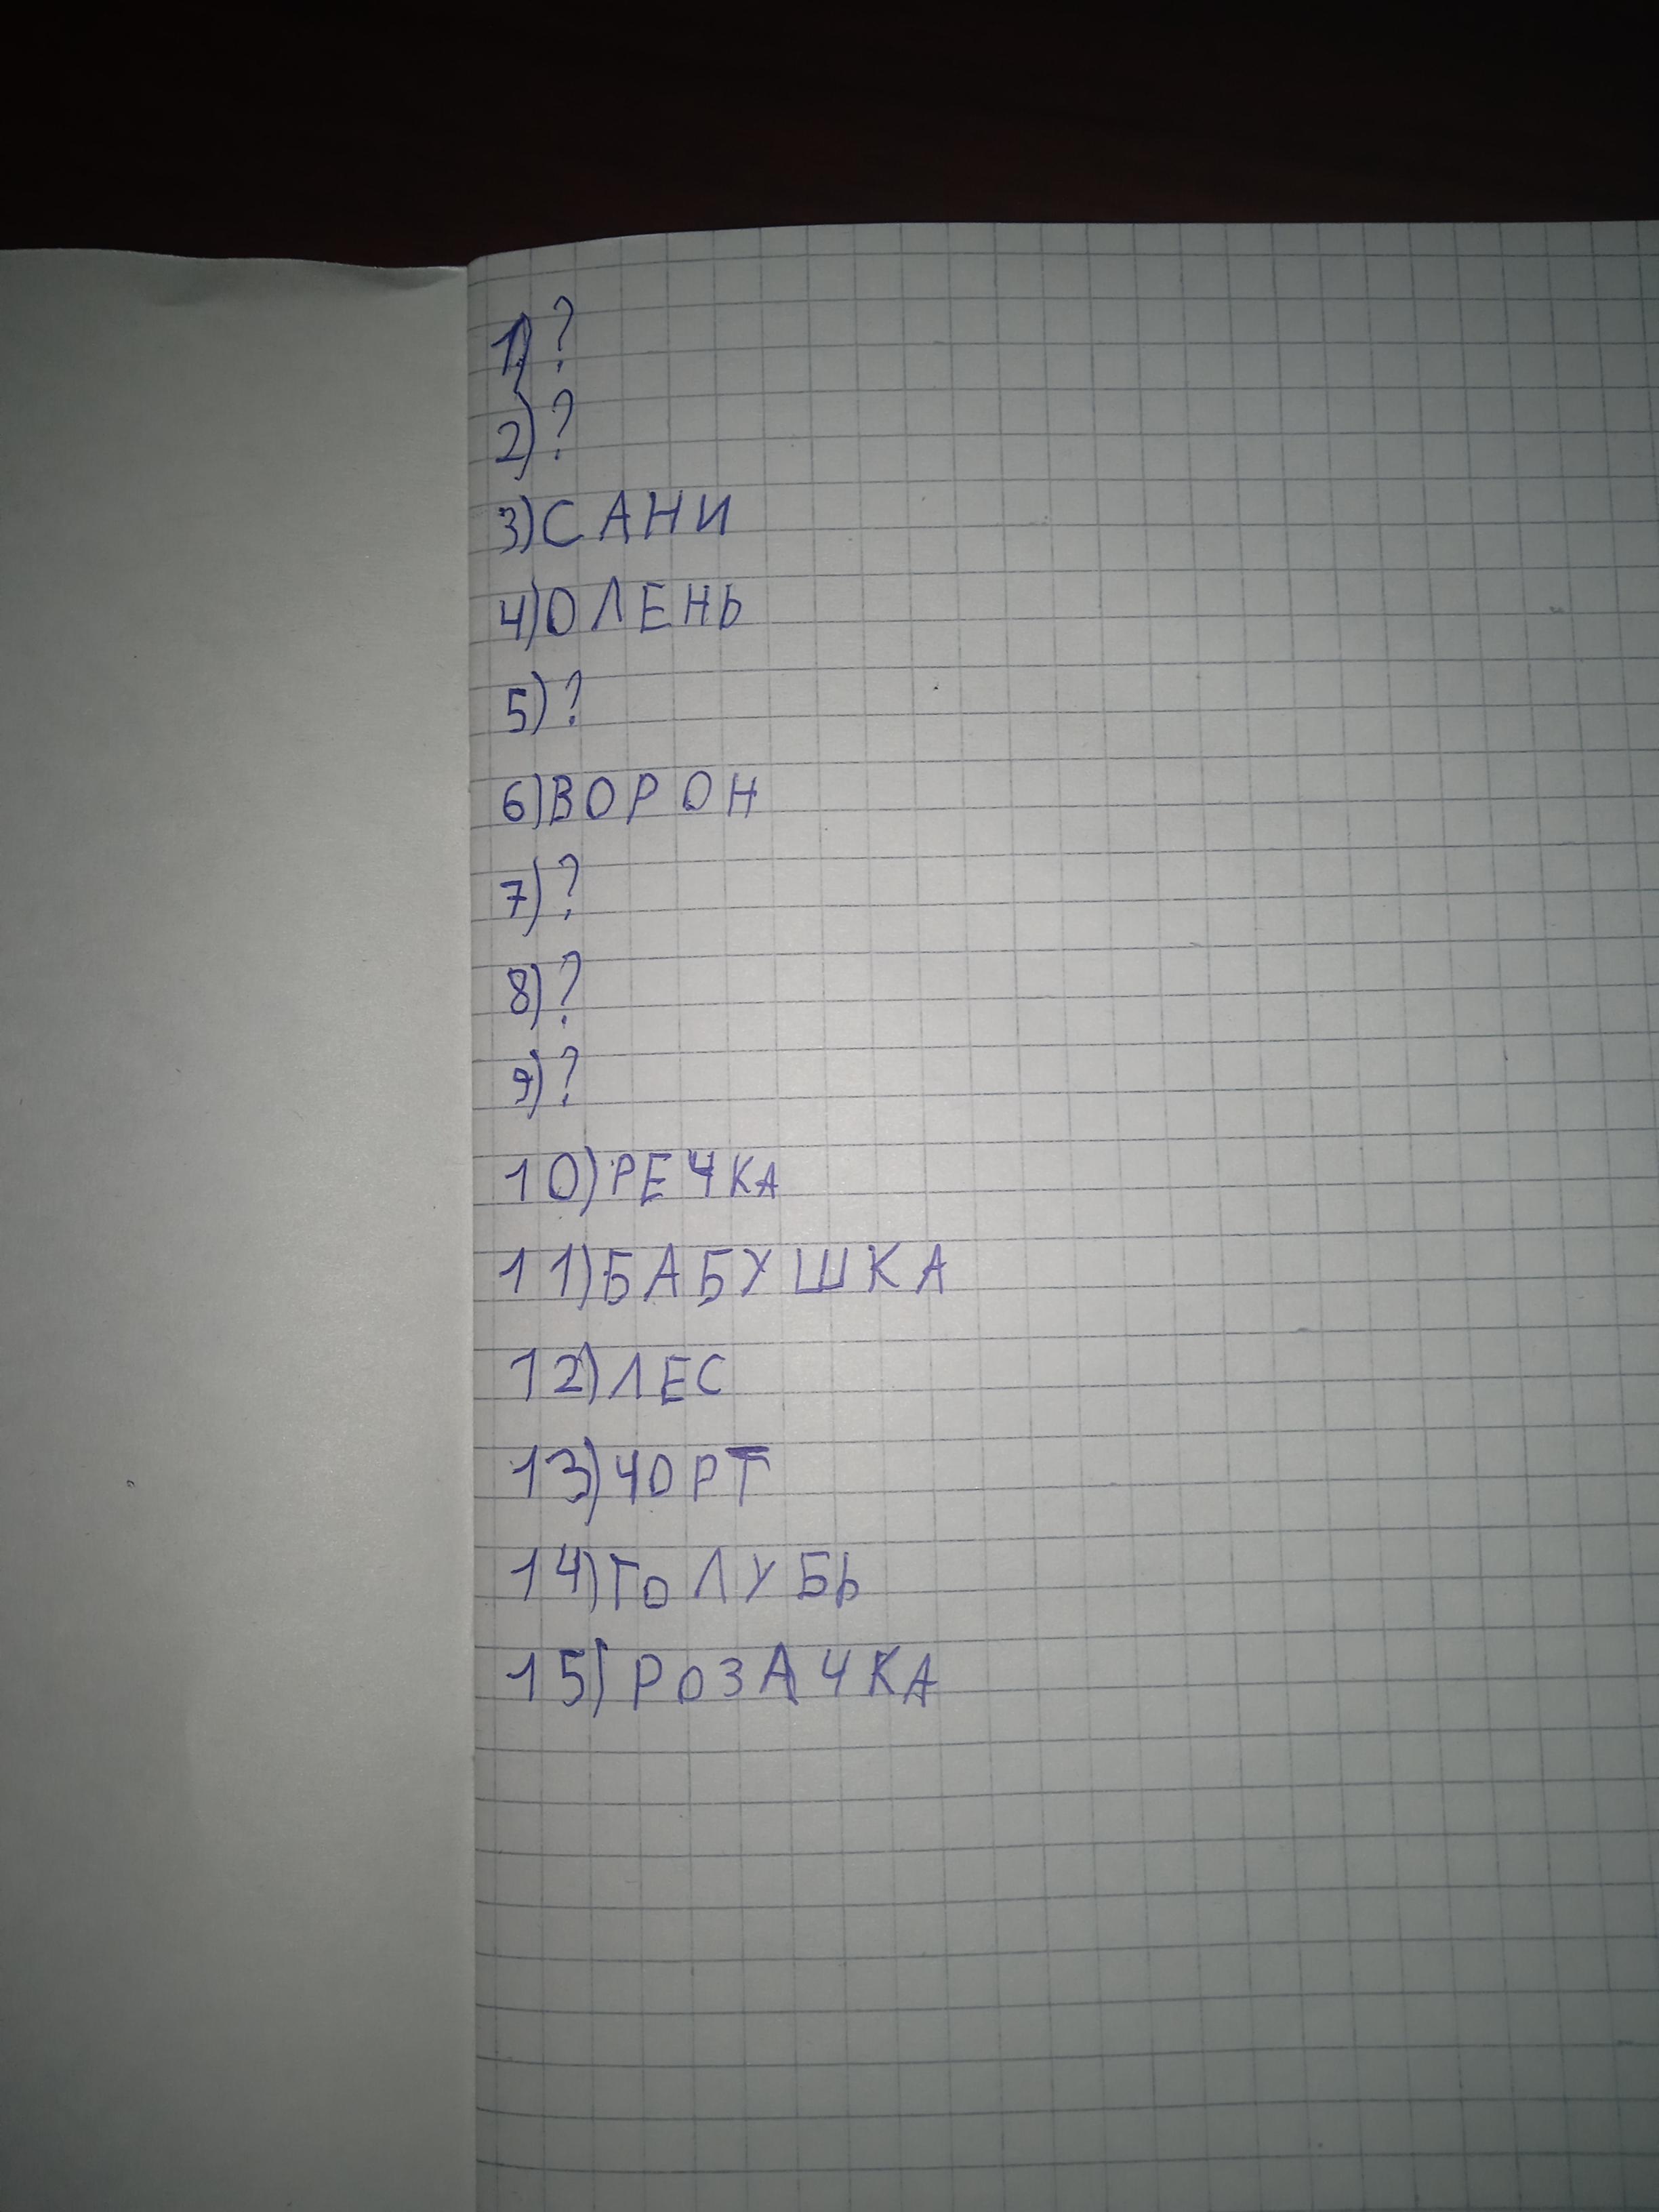 1)?
2)?
3)САНИ
4)ОЛЕНЬ
5)?
6)ВОРОН
7)?
8)?
9)?
10)РЕЧКА
11)БАБУШКА
12)ЛЕС
13)ЧОРТ
14)ГОЛУБЬ
15)РОЗАЧКА